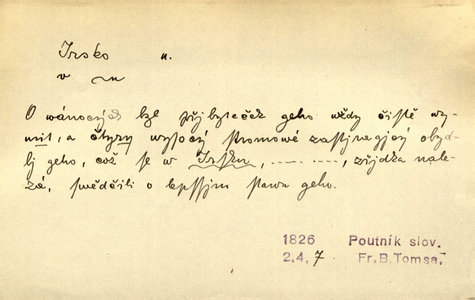 Irsko n.
v
O wánocých byl přjbyteček geho wždy čistě wy-
mit, a čtyry wysocý stromowé zastjnugjcý obyd-
lj geho, což se w Irsku, ..... ....., zřjdka nale-
zá, swědčili o lepssjm stawu geho.
1826 Poutník slov.
2,4,7 Fr.B.Tomsa.